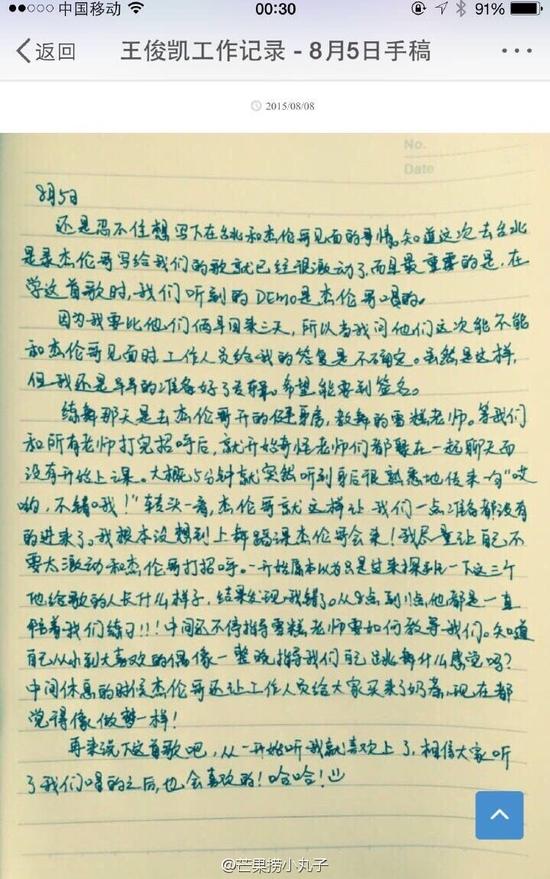 中国移动
00:30
91%
返回
王俊凯工作记录 - 8月5日手稿
2015/08/08
No.
Date
8月5日
还是忍不住想写下在台北和杰伦哥见面的事情。知道这次去台北
是录杰伦哥写给我们的歌就已经很激动了,而且最重要的是,在
学这首歌时,我们听到的DEMO是杰伦哥唱的。
因为我要比他们俩早回来三天,所以当我问他们这次能不能
和杰伦哥见面时,工作人员给我的答复是不确定。虽然是这样,
但我还是早早的准备好了专辑。希望能要到签名。
练舞那天是去杰伦哥开的健身房,教舞的雪糕老师。等我们
和所有老师打完招呼后,就开始奇怪老师们都聚在一起聊天而
没有开始上课。大概15分钟就突然听到身后很熟悉地传来一句“哎
哟,不错哦!”转头一看,杰伦哥就这样让我们一点准备都没有
的进来了。我根本没想到上舞蹈课杰伦哥会来!我尽量让自己不
要太激动和杰伦哥打招呼。一开始原本以为只是过来探班一下这三个
他给歌的人长什么样子,结果发现我错了。从8点到11点他都是一直
陪着我们练习!!!中间还不停指导雪糕老师要如何教导我们。知道
自己从小到大喜欢的偶像一整晚指导我们自己跳舞什么感觉吗?
中间休息的时候杰伦哥还让工作人员给大家买来了奶茶,现在都
觉得像做梦一样!
再来说下这首歌吧,从一开始听我就喜欢上了,相信大家听
了我们唱的之后,也会喜欢的!哈哈!
@芒果捞小丸子